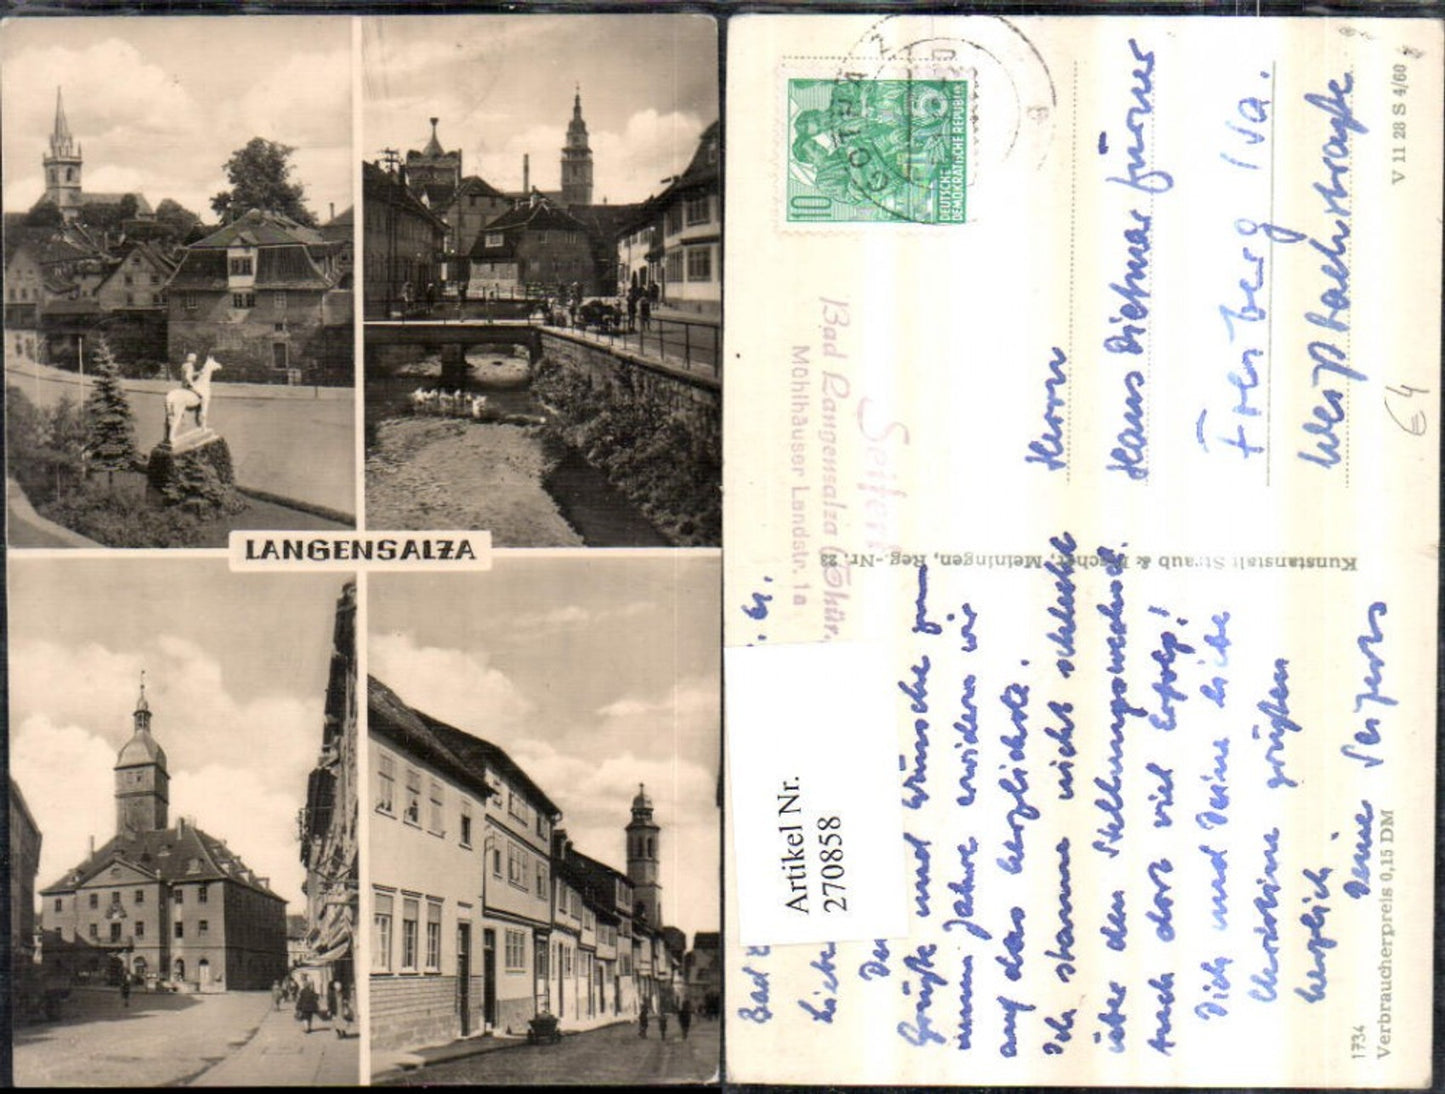 LANGENSALZA
DEUTSCHE
DEMOKRATISCHE REPUBLIK
10
GOTHA
Seifert
Bad Langensalza (Thür.
Mühlhäuser Landstr. 1a
Herrn
Hans Dietmar
Freiberg / Sa.
V 11 28 S 4/60
€ 4
Kunstanstalt Straub & Fischer, Meiningen, Reg.-Nr. 23
Artikel Nr.
270858
Bad
Liebe
Grüße und Wünsche zum
neuen Jahre erwidern wir
auf das herzlichste.
Ich staune nicht schlecht
über den Stellungswechsel.
Auch dort viel Erfolg!
Dich und Deine liebe
Christine grüßen
herzlich
Deine Seiferts
1734
Verbraucherpreis 0,15 DM